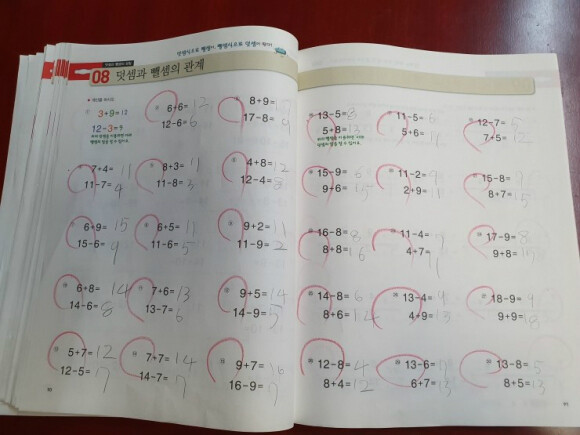 덧셈식으로 뺄셈식, 뺄셈식으로 덧셈식
08 덧셈과 뺄셈의 관계
3+9=12
12-3=9
6+6=12
12-6=6
8+9=
17-8=9
7+4=11
11-7=4
8+3=11
11-8=3
4+8=12
12-4=8
6+9=15
15-6=9
6+5=11
11-6=5
9+2=11
11-9=2
6+8=14
14-6=8
7+6=13
13-7=6
9+5=14
14-9=5
5+7=12
12-5=7
7+7=14
14-7=7
9+7=16
16-9=7
13-5=8
5+8=13
11-5=6
5+6=11
12-7=5
7+5=12
15-9=6
9+6=15
11-2=9
2+9=11
15-8=
8+7=
16-8=8
8+8=16
11-4=
4+7=11
17-9=8
9+8=
14-8=6
8+6=14
13-4=9
4+9=13
18-9=9
9+9=18
12-8=4
8+4=12
13-6=7
6+7=13
13-8=5
8+5=13